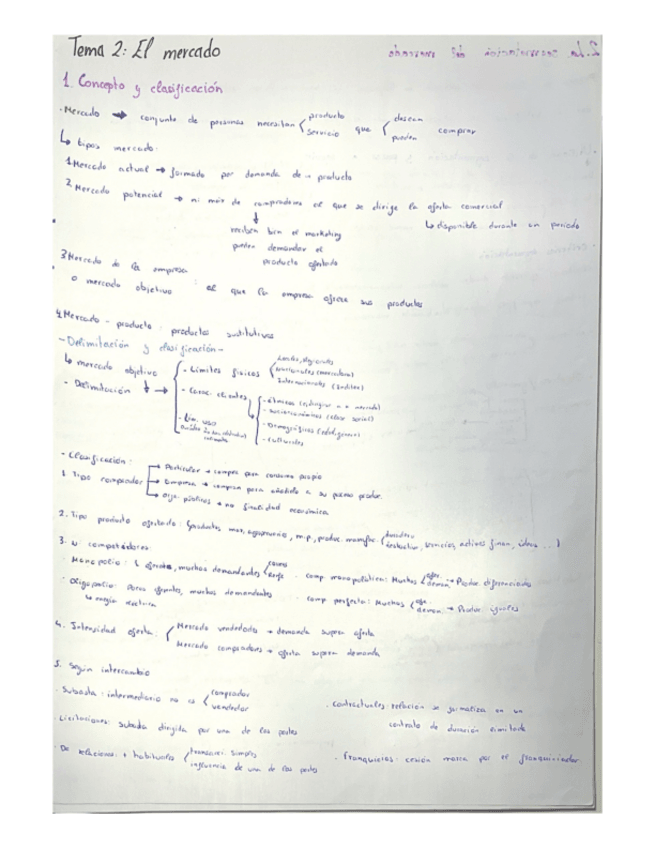 Tema 2: El mercado
1. Concepto y clasificación
· Mercado → conjunto de personas necesitan producto servicio que desean pueden comprar
↳ tipos mercado:
1 Mercado actual → formado por demanda de producto
2 Mercado potencial → nº máx de compradores al que se dirige la oferta comercial
↓ ↳ disponible durante un periodo
reciben bien el marketing
pueden demandar el
producto ofertado
3 Mercado de la empresa
o mercado objetivo : al que la empresa ofrece sus productos
4 Mercado - producto: productos sustitutivos
- Delimitación y clasificación -
↳ mercado objetivo
- Delimitación ↓ →
- Límites físicos
Locales, regionales
Nacionales (Mercadona)
Internacionales (Inditex)
- Carac. clientes
- Étnicas
- Socioeconómicas (clase social)
- Demográficas (edad, genero)
- Culturales
- Lim. uso
- Clasificación:
1. Tipo comprador
→ Particular → compra para consumo propio
→ Empresa → compran para añadirlo a su proceso produc.
→ Orga. públicos → no finalidad económica
2. Tipo producto ofertado: (productos mar, agropecuario, m.p, produc. manufac. duradero, servicios, activos finan, ideas ...)
3. Nº competidores:
· Monopolio: 1 oferente, muchos demandantes
· comp monopolística: Muchos ofer. deman. → Produc. diferenciado
· Oligopolio: Pocos oferentes, muchos demandantes
↳ energía eléctrica
· comp perfecta: Muchos ofe. deman. → Produc iguales
4. Intensidad oferta:
Mercado vendedores → demanda supera oferta
Mercado compradores → oferta supera demanda
5. Según intercambio
· Subasta: intermediario no es comprador vendedor
· contractuales: relación se formaliza en un
contrato de duración limitada
· Licitaciones: subasta dirigida por una de las partes
· De relaciones: + habituales
transacci. simples
influencia de una de las partes
· Franquicias: cesión marca por el franquiciador